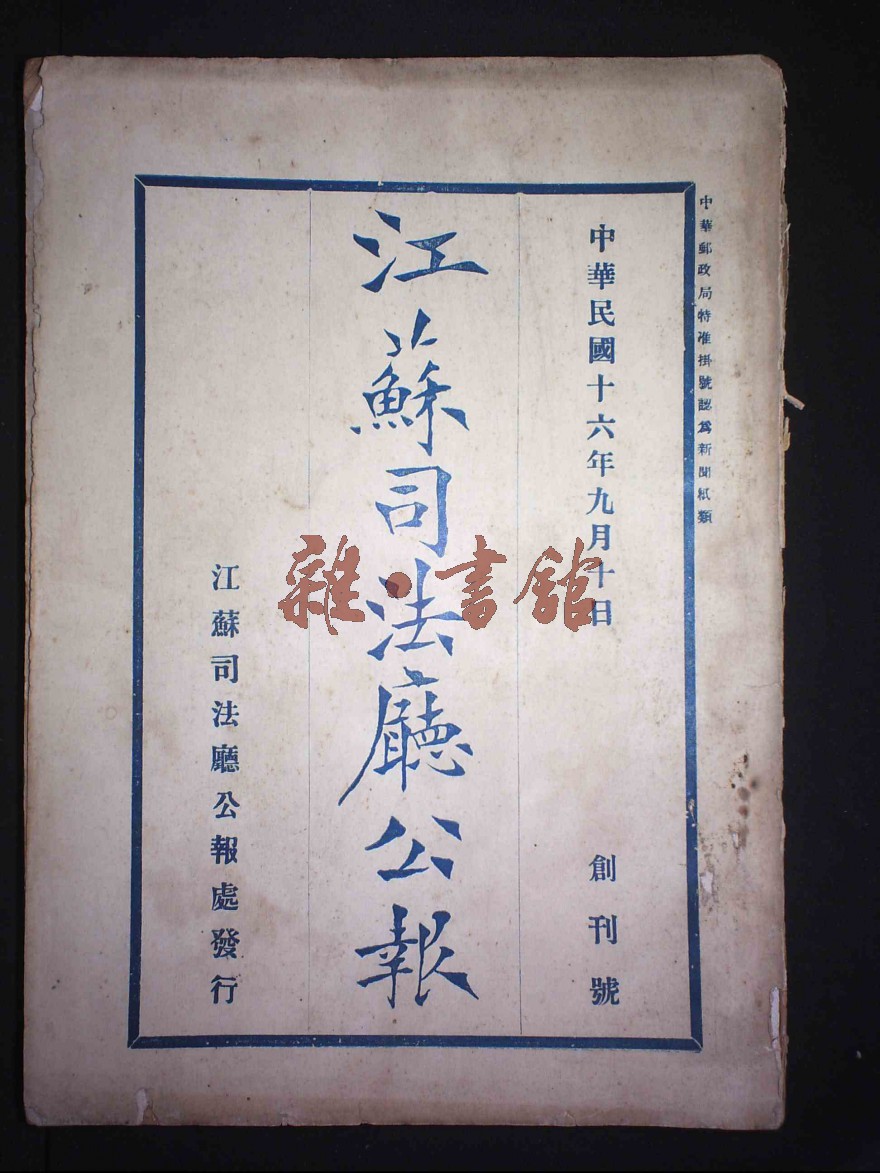 中華郵政局特准掛號認爲新聞紙類
中華民國十六年九月十日
創刊號
江蘇司法廳公報
江蘇司法廳公報處發行
雜·書館